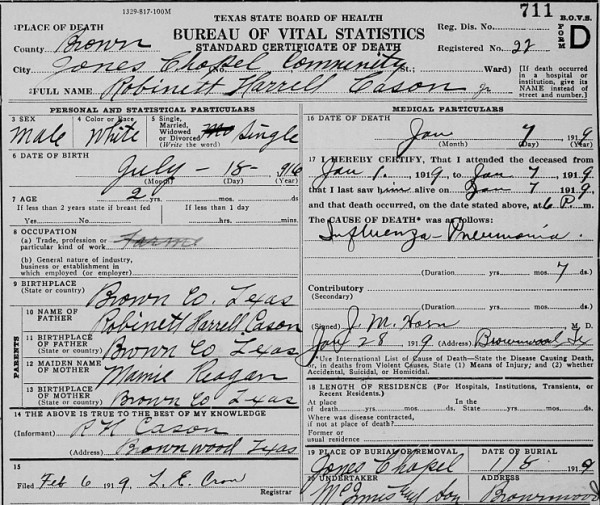 1329-817-100M
TEXAS STATE BOARD OF HEALTH
711 B.O.V.S.
1 PLACE OF DEATH
BUREAU OF VITAL STATISTICS
Reg. Dis. No.
FORM D
County Brown
STANDARD CERTIFICATE OF DEATH
Registered No. 22
City Jones Chapel Community (No. St.; Ward)
[If death occurred in a hospital or institution, give its NAME instead of street and number.]
2 FULL NAME Robinett Harrell Cason Jr
PERSONAL AND STATISTICAL PARTICULARS
3 SEX Male
4 Color or Race White
5 Single, Married, Widowed or Divorced (Write the word) Single
6 DATE OF BIRTH
July - 18 - 1916
(Month) (Day) (Year)
7 AGE 2
If less than 2 years state if breast fed
If less than 1 day
Yes No hrs. mins.
8 OCCUPATION
(a) Trade, profession or particular kind of work
(b) General nature of industry, business or establishment in which employed (or employer)
9 BIRTHPLACE
(State or country) Brown Co. Texas
PARENTS
10 NAME OF FATHER Robinett Harrell Cason
11 BIRTHPLACE OF FATHER (State or country) Brown Co Texas
12 MAIDEN NAME OF MOTHER Mamie Reagan
13 BIRTHPLACE OF MOTHER (State or country) Brown Co Texas
14 THE ABOVE IS TRUE TO THE BEST OF MY KNOWLEDGE
(Informant) R H Cason
(Address) Brownwood Texas
15
Filed Feb 6 1919, L. E. Crow
Registrar
MEDICAL PARTICULARS
16 DATE OF DEATH
Jan 7 1919
(Month) (Day) (Year)
17 I HEREBY CERTIFY, That I attended the deceased from
Jan 1. 1919, to Jan 7, 1919,
that I last saw him alive on Jan 7 1919,
and that death occurred, on the date stated above, at 6 P. m.
The CAUSE OF DEATH* was as follows:
Influenza - Pneumonia.
(Duration) yrs. mos. 7 ds.
Contributory
(Secondary)
(Duration) yrs. mos. ds.
(Signed) J. M. Horn M. D.
Jan 28 1919 (Address) Brownwood Tx
*Use International List of Cause of Death—State the Disease Causing Death, or, in deaths from Violent Causes, State (1) Means of Injury; and (2) whether Accidental, Suicidal, or Homicidal.
18 LENGTH OF RESIDENCE (For Hospitals, Institutions, Transients, or Recent Residents.)
At place of death yrs. mos. ds. State yrs. mos. ds.
Where was disease contracted, if not at place of death?
Former or usual residence
19 PLACE OF BURIAL OR REMOVAL
DATE OF BURIAL
Jones Chapel 1/8 1919
20 UNDERTAKER
ADDRESS
Son Brownwood